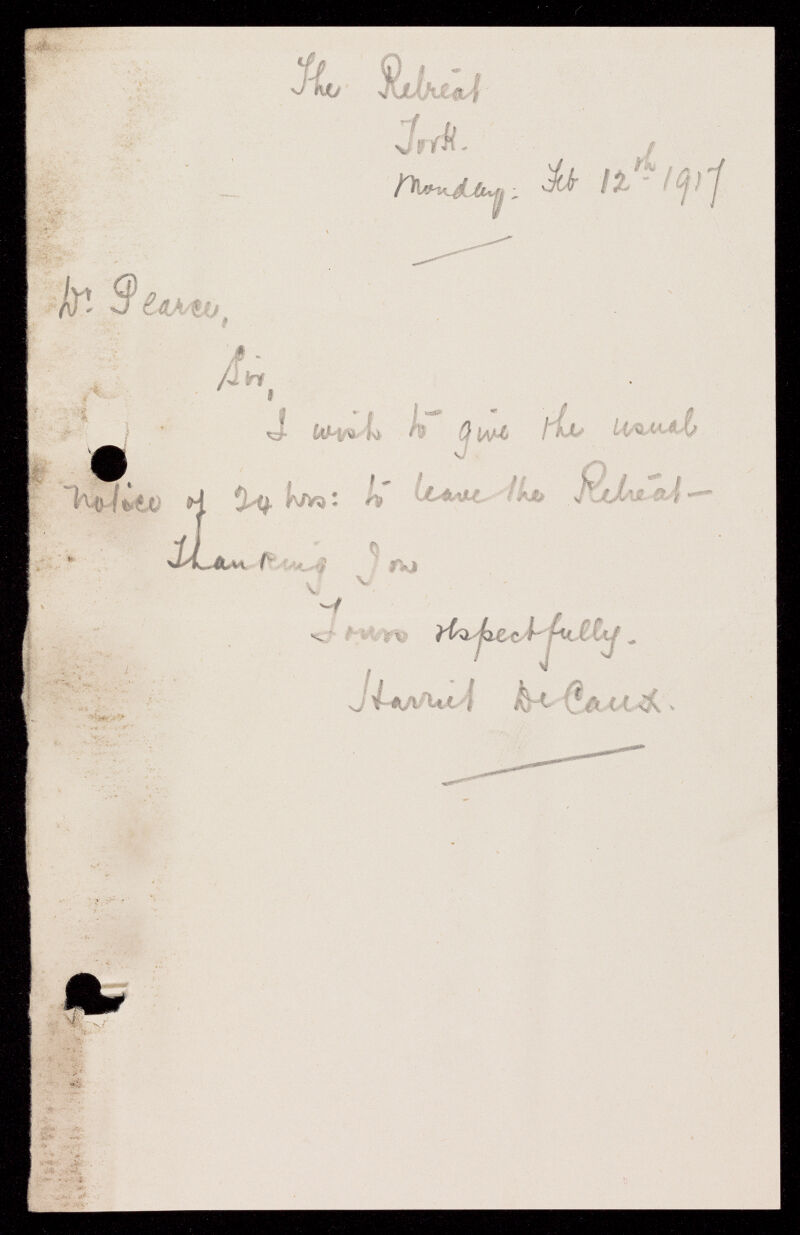 The Retreat
York.
Monday: Feb 12th 1917
Dr. Pearce,
Sir,
I wish to give the usual
notice of 24 hrs: to leave the Retreat—
Thanking You
Yours respectfully.
Harriet De Caux.